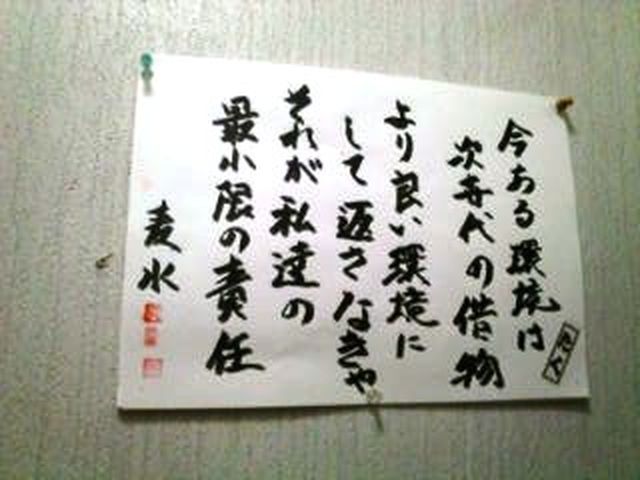 今ある環境は
次世代の借物
より良い環境に
して返さなきゃ
それが私達の
最小限の責任
麦水